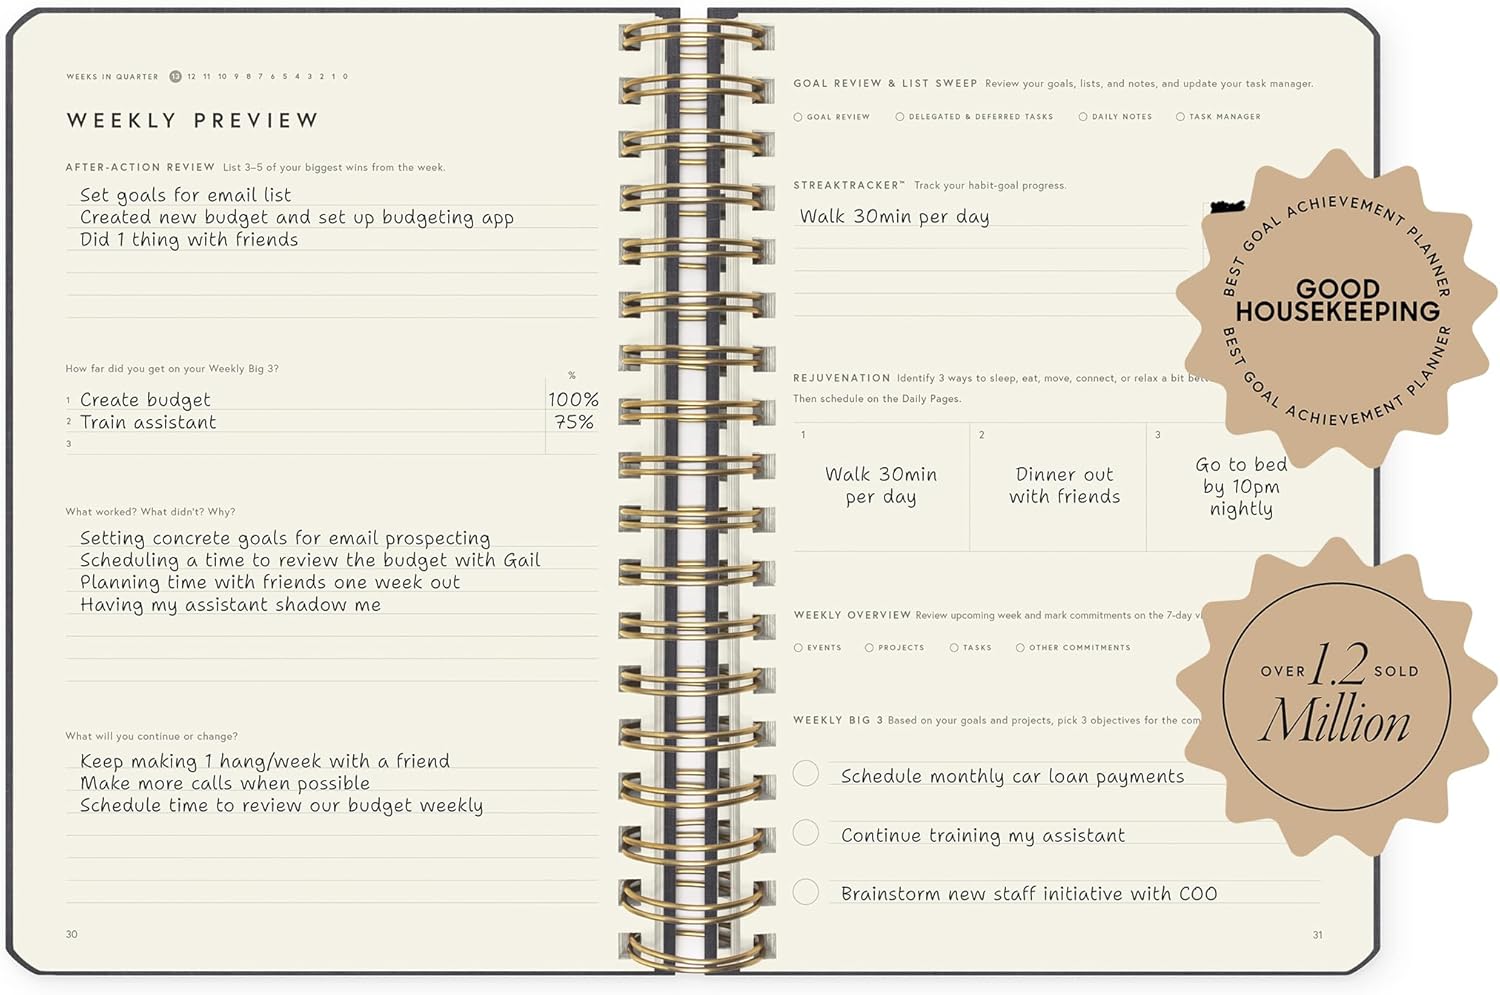 WEEKS IN QUARTER 13 12 11 10 9 8 7 6 5 4 3 2 1 0
WEEKLY PREVIEW
AFTER-ACTION REVIEW List 3–5 of your biggest wins from the week.
Set goals for email list
Created new budget and set up budgeting app
Did 1 thing with friends
How far did you get on your Weekly Big 3?
%
1 Create budget 100%
2 Train assistant 75%
3
What worked? What didn't? Why?
Setting concrete goals for email prospecting
Scheduling a time to review the budget with Gail
Planning time with friends one week out
Having my assistant shadow me
What will you continue or change?
Keep making 1 hang/week with a friend
Make more calls when possible
Schedule time to review our budget weekly
30
GOAL REVIEW & LIST SWEEP Review your goals, lists, and notes, and update your task manager.
GOAL REVIEW DELEGATED & DEFERRED TASKS DAILY NOTES TASK MANAGER
STREAKTRACKER™ Track your habit-goal progress.
Walk 30min per day
REJUVENATION Identify 3 ways to sleep, eat, move, connect, or relax a bit
Then schedule on the Daily Pages.
1
Walk 30min
per day
2
Dinner out
with friends
3
Go to bed
by 10pm
nightly
WEEKLY OVERVIEW Review upcoming week and mark commitments on the 7-day
EVENTS PROJECTS TASKS OTHER COMMITMENTS
WEEKLY BIG 3 Based on your goals and projects, pick 3 objectives for the
Schedule monthly car loan payments
Continue training my assistant
Brainstorm new staff initiative with COO
31
BEST GOAL ACHIEVEMENT PLANNER
GOOD
HOUSEKEEPING
BEST GOAL ACHIEVEMENT PLANNER
OVER 1.2 SOLD
Million